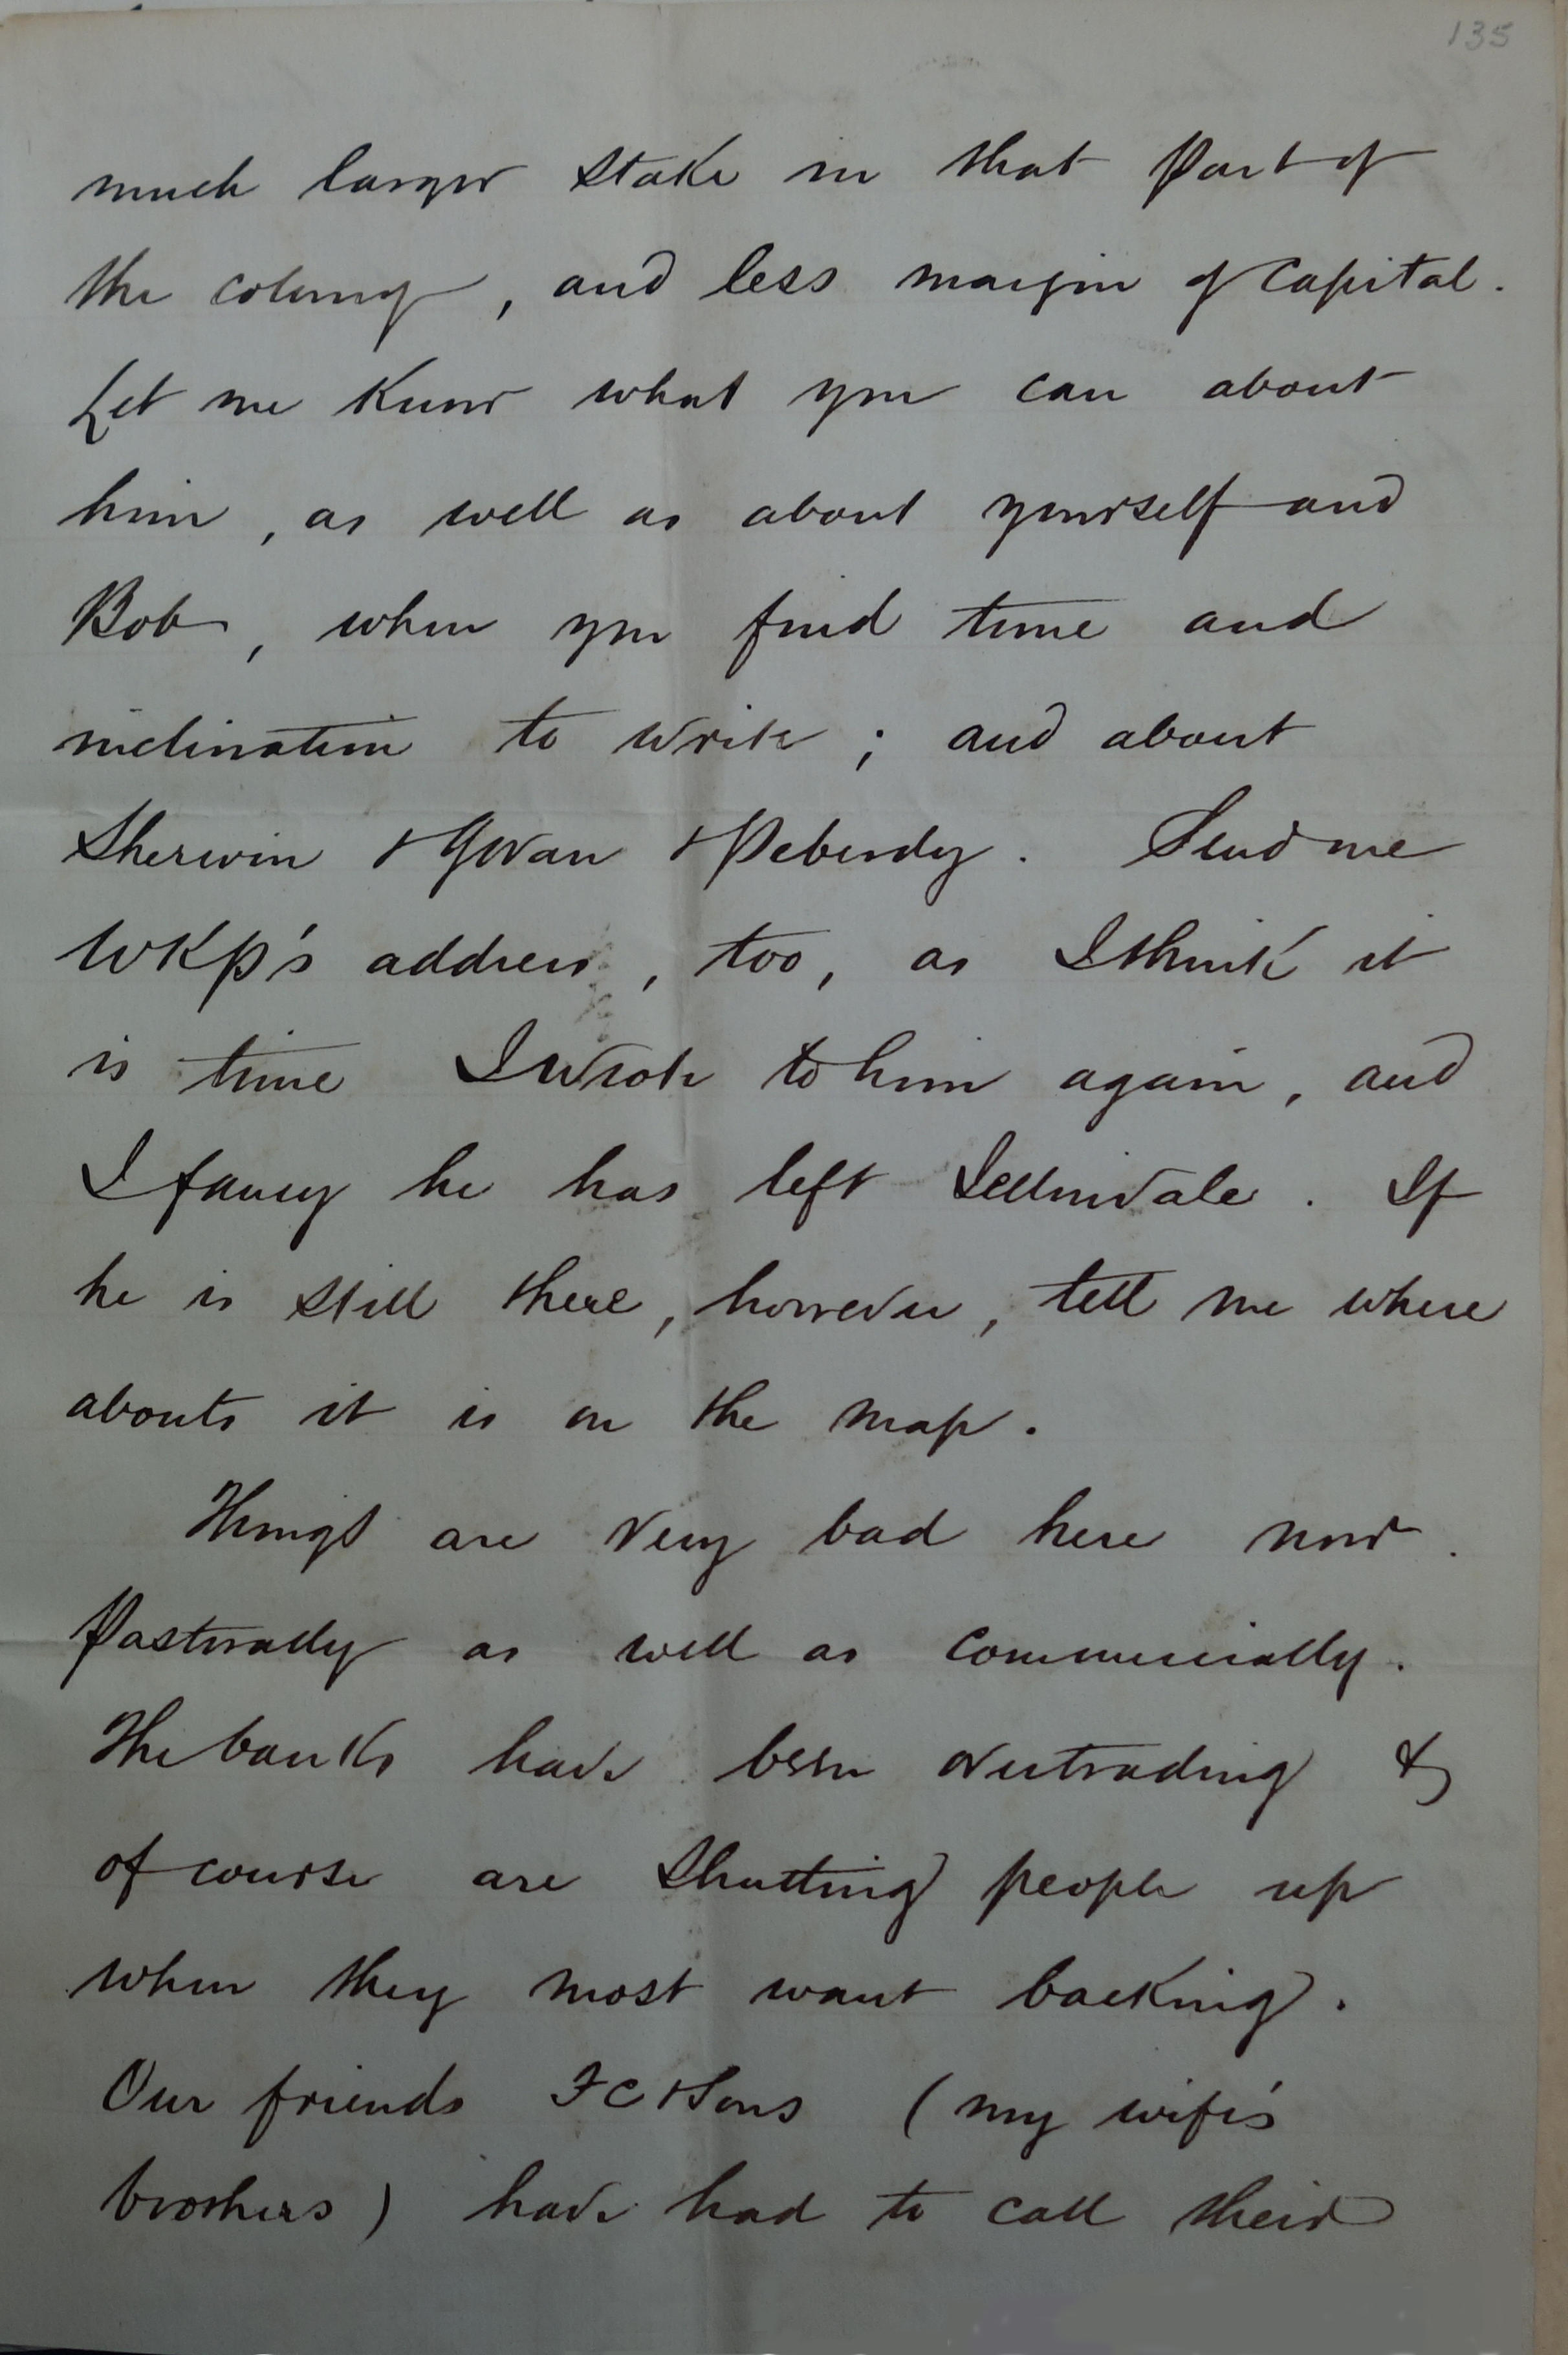 135
much larger stake in that part of
the colony, and less margin of capital.
Let me know what you can about
him, as well as about yourself and
Bob, when you find time and
inclination to write; and about
Sherwin & Gwan & Peberdy. Send me
WKP's address, too, as I think it
is time I wrote to him again, and
I fancy he has left . If
he is still there, however, tell me where
abouts it is on the map.
Things are very bad here now.
Pastorally as well as commercially.
The banks have been overtrading &
of course are shutting people up
when they most want backing.
Our friends FC & Sons (my wife's
brothers) have had to call their